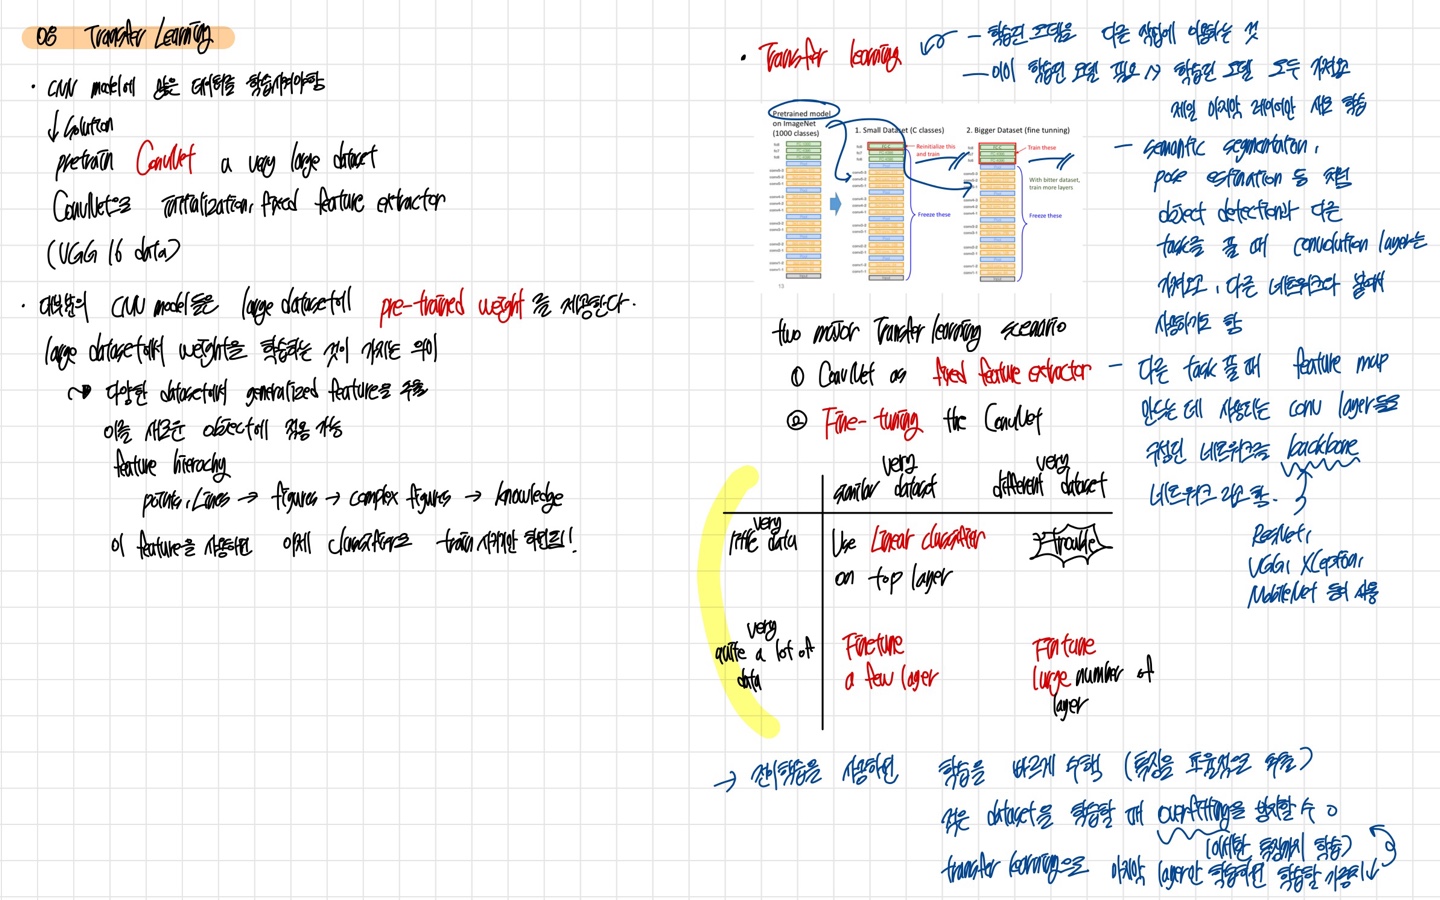 08 Transfer Learning
· CNN model에 많은 데이터를 학습시켜야함
↓ Solution
pretrain ConvNet a very large dataset
ConvNet으로 initialization, fixed feature extractor
(VGG 16 data)
· 대부분의 CNN model들은 large dataset에 pre-trained weight를 제공한다.
large dataset에서 weight을 학습하는 것이 가지는 의미
다양한 dataset에서 generalized feature을 추출
이를 새로운 object에 적용 가능
feature hierachy
points, Lines → figures → complex figures → knowledge
이 feature을 사용하면 이제 classifier만 train시키면 학습됨!
· Transfer learning
- 학습된 모델을 다른 작업에 이용하는 것
- 이미 학습된 모델 필요 학습된 모델 모두 가져오고
제일 마지막 레이어만 새로 학습
Pretrained model
on ImageNet
(1000 classes)
1. Small Dataset (C classes)
Reinitialize this
and train
Freeze these
2. Bigger Dataset (fine tunning)
Train these
With bitter dataset,
train more layers
Freeze these
13
- semantic segmentation,
pose estimation 등 처럼
object detection과 다른
task를 풀 때 convolution layer는
가져오고, 다른 네트워크와 붙여서
사용하기도 함
two major Transfer learning scenario
① ConvNet as fixed feature extractor
② Fine-tuning the ConvNet
- 다른 task 풀 때 feature map
만드는 데 사용되는 conv layer들로
구성된 네트워크를 backbone
네트워크 라고 함.
ResNet,
VGG, XCeption,
MobileNet 등이 사용
very similar dataset
very different dataset
very little data
Use Linear classifier
on top layer
Trouble
very
quite a lot of
data
Finetune
a few layer
Fintune
large number of
layer
→ 전이학습을 사용하면 학습을 빠르게 수행 (특징을 효율적으로 추출)
적은 dataset을 학습할 때 overfitting을 방지할 수 o
(미세한 특징까지 학습)
transfer learning으로 마지막 layer만 학습하면 학습할 가중치↓